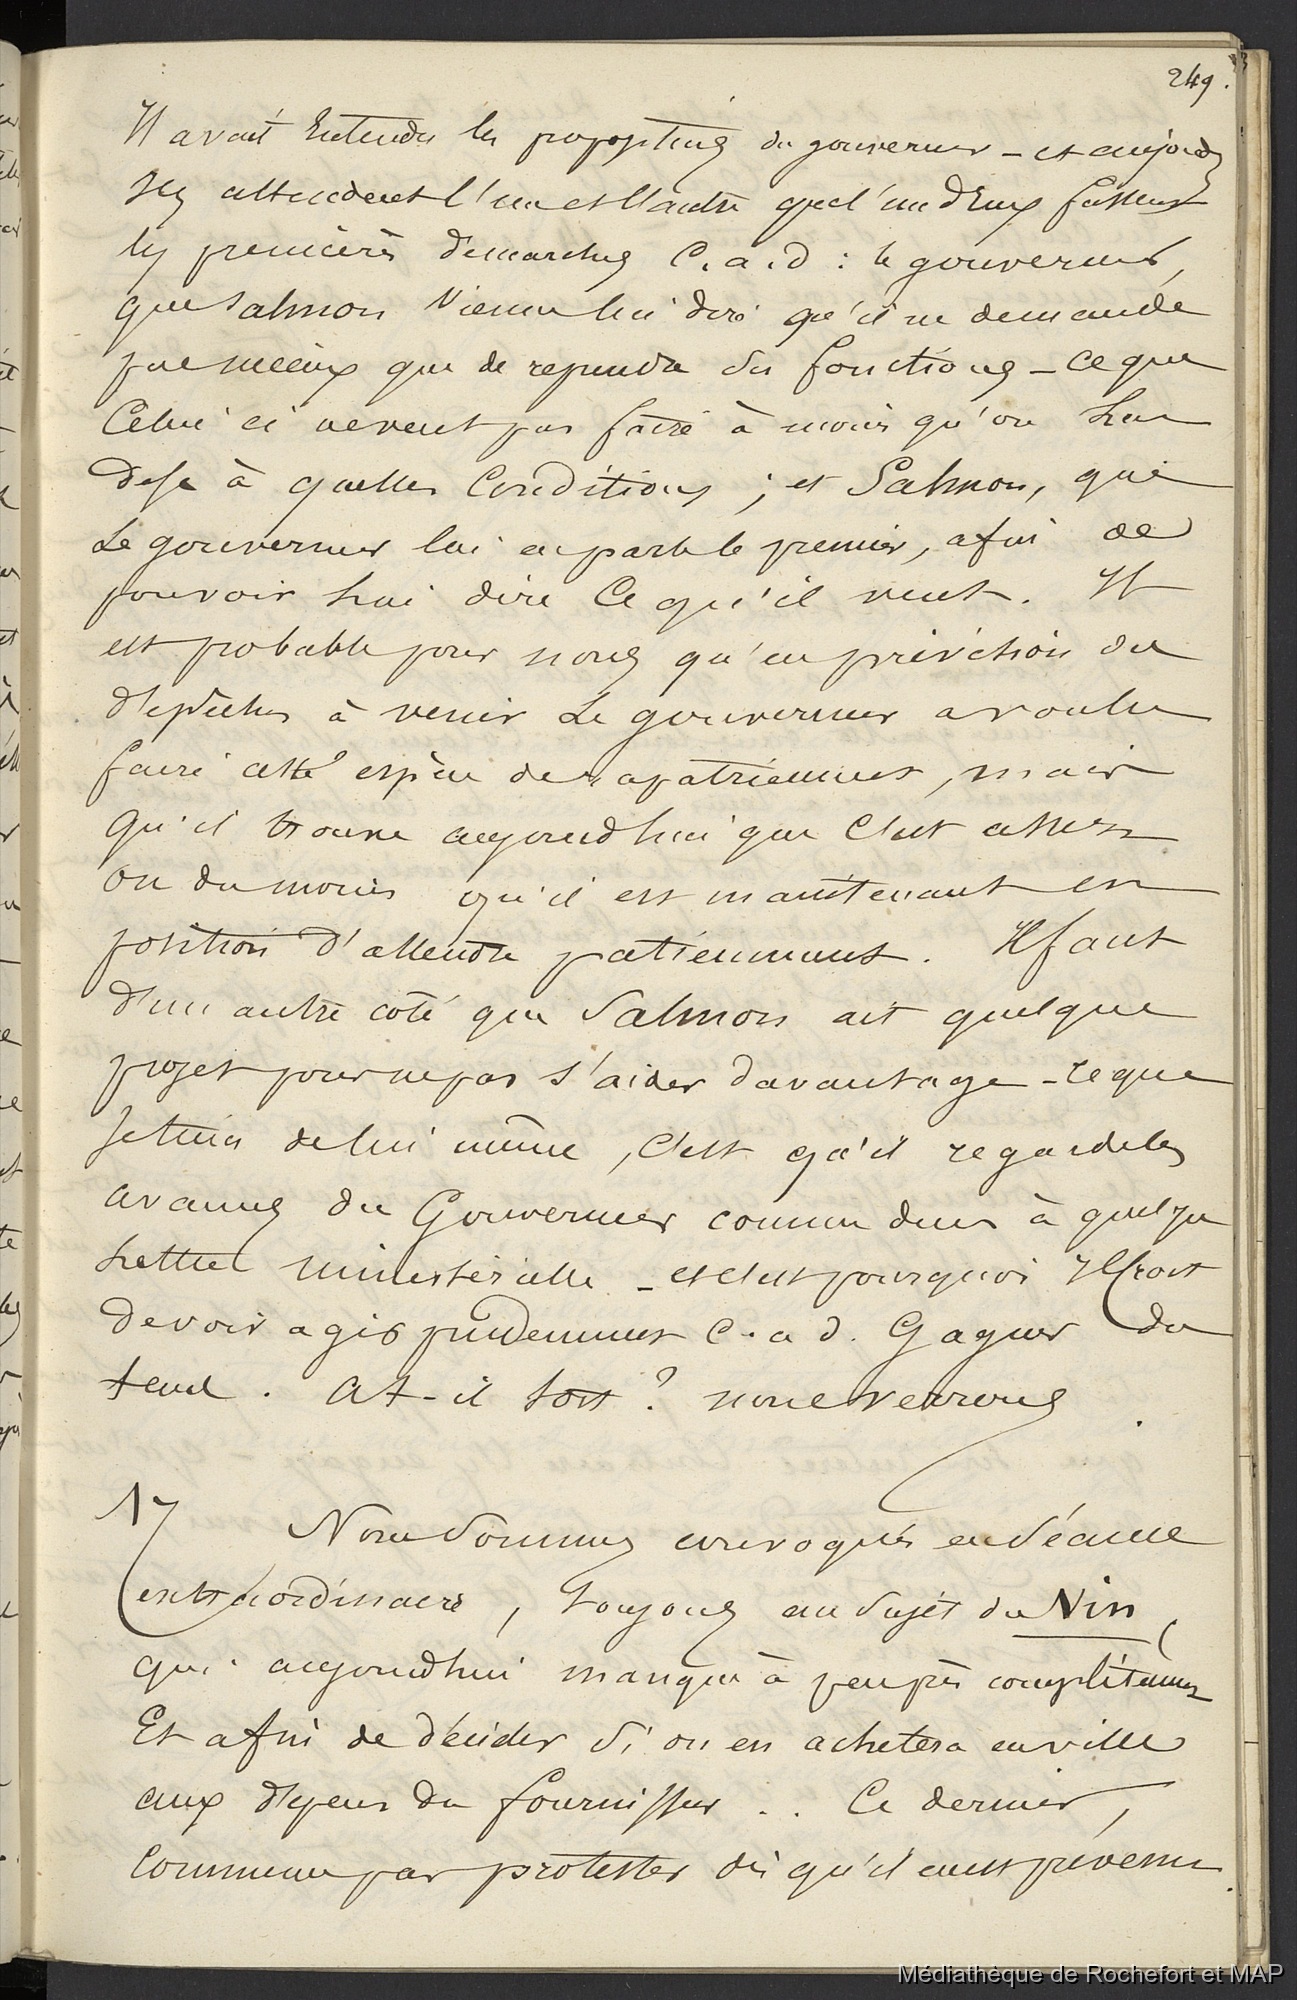 249.
Il avait entendu les propositions du gouverneur _ et aujourd.
Ils attendent l'un et l'autre que l'un d'Eux fassent
les premières démarches C. a. d : le gouverneur,
que Salmon vienne lui dire qu'il ne demande
pas mieux que de reprendre ses fonctions _ ce que
Celui ci ne veut pas faire à moins qu'on Lui
dise à quelles Conditions ; et Salmon, que
Le gouverneur lui en parle le premier, afin de
pouvoir Lui dire Ce qu'il veut. Il
est probable pour nous qu'en prévision des
dépêches à venir Le gouverneur a voulu
faire cette espèce de rapatriement, mais
Qu'il trouve aujourd'hui que C'est assez
ou du moins qu'il est maintenant en
position d'attendre patiemment. Il faut
d'un autre coté que Salmon ait quelque
projet pour ne pas s'aider davantage _ ce que
Je tiens de lui même, C'est qu'il regarde les
avances du Gouverneur comme dues à quelque
Lettre ministérielle _ et c'est pourquoi Il croit
devoir agir prudemment C. a d. Gagner du
tems. At-il tort ? nous verrons.
17 Nous Sommes convoqués en Séance
extraordinaire, toujours au Sujet du Vin,
qui aujourd'hui manque à peu près complétement
Et afin de décider Si on en achetera en ville
aux dépens du fournisseur .. Ce dernier,
Commence par protester dès qu'il eut prévenu.
Médiathèque de Rochefort et MAP